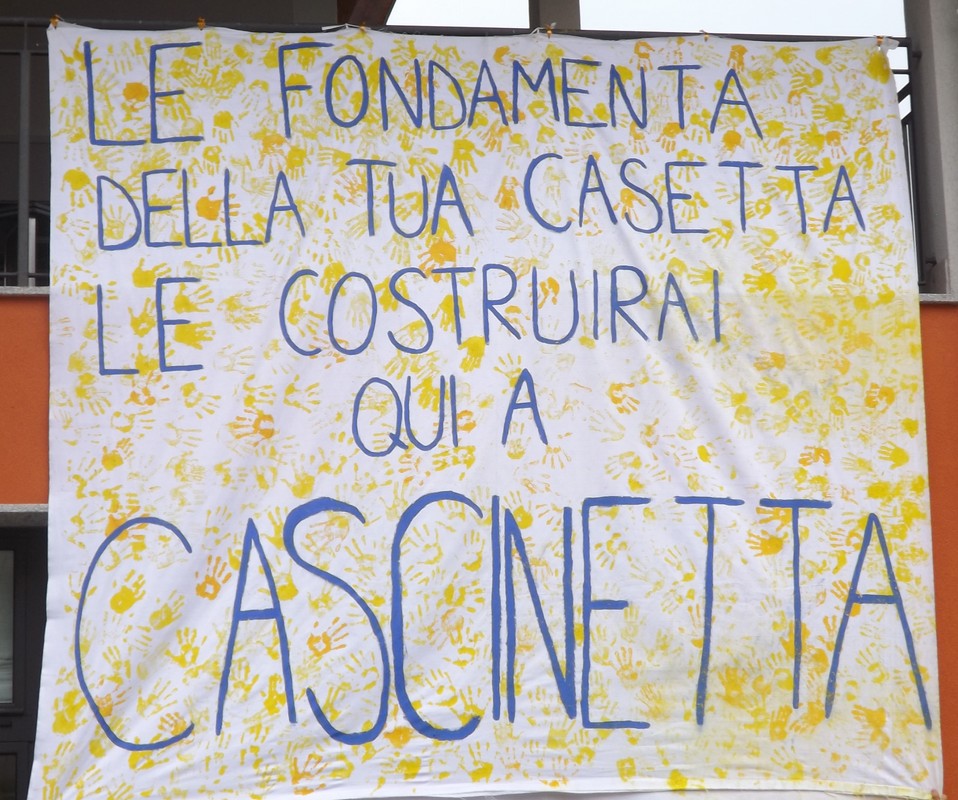 LE FONDAMENTA
DELLA TUA CASETTA
LE COSTRUIRAI
QUI A
CASCINETTA